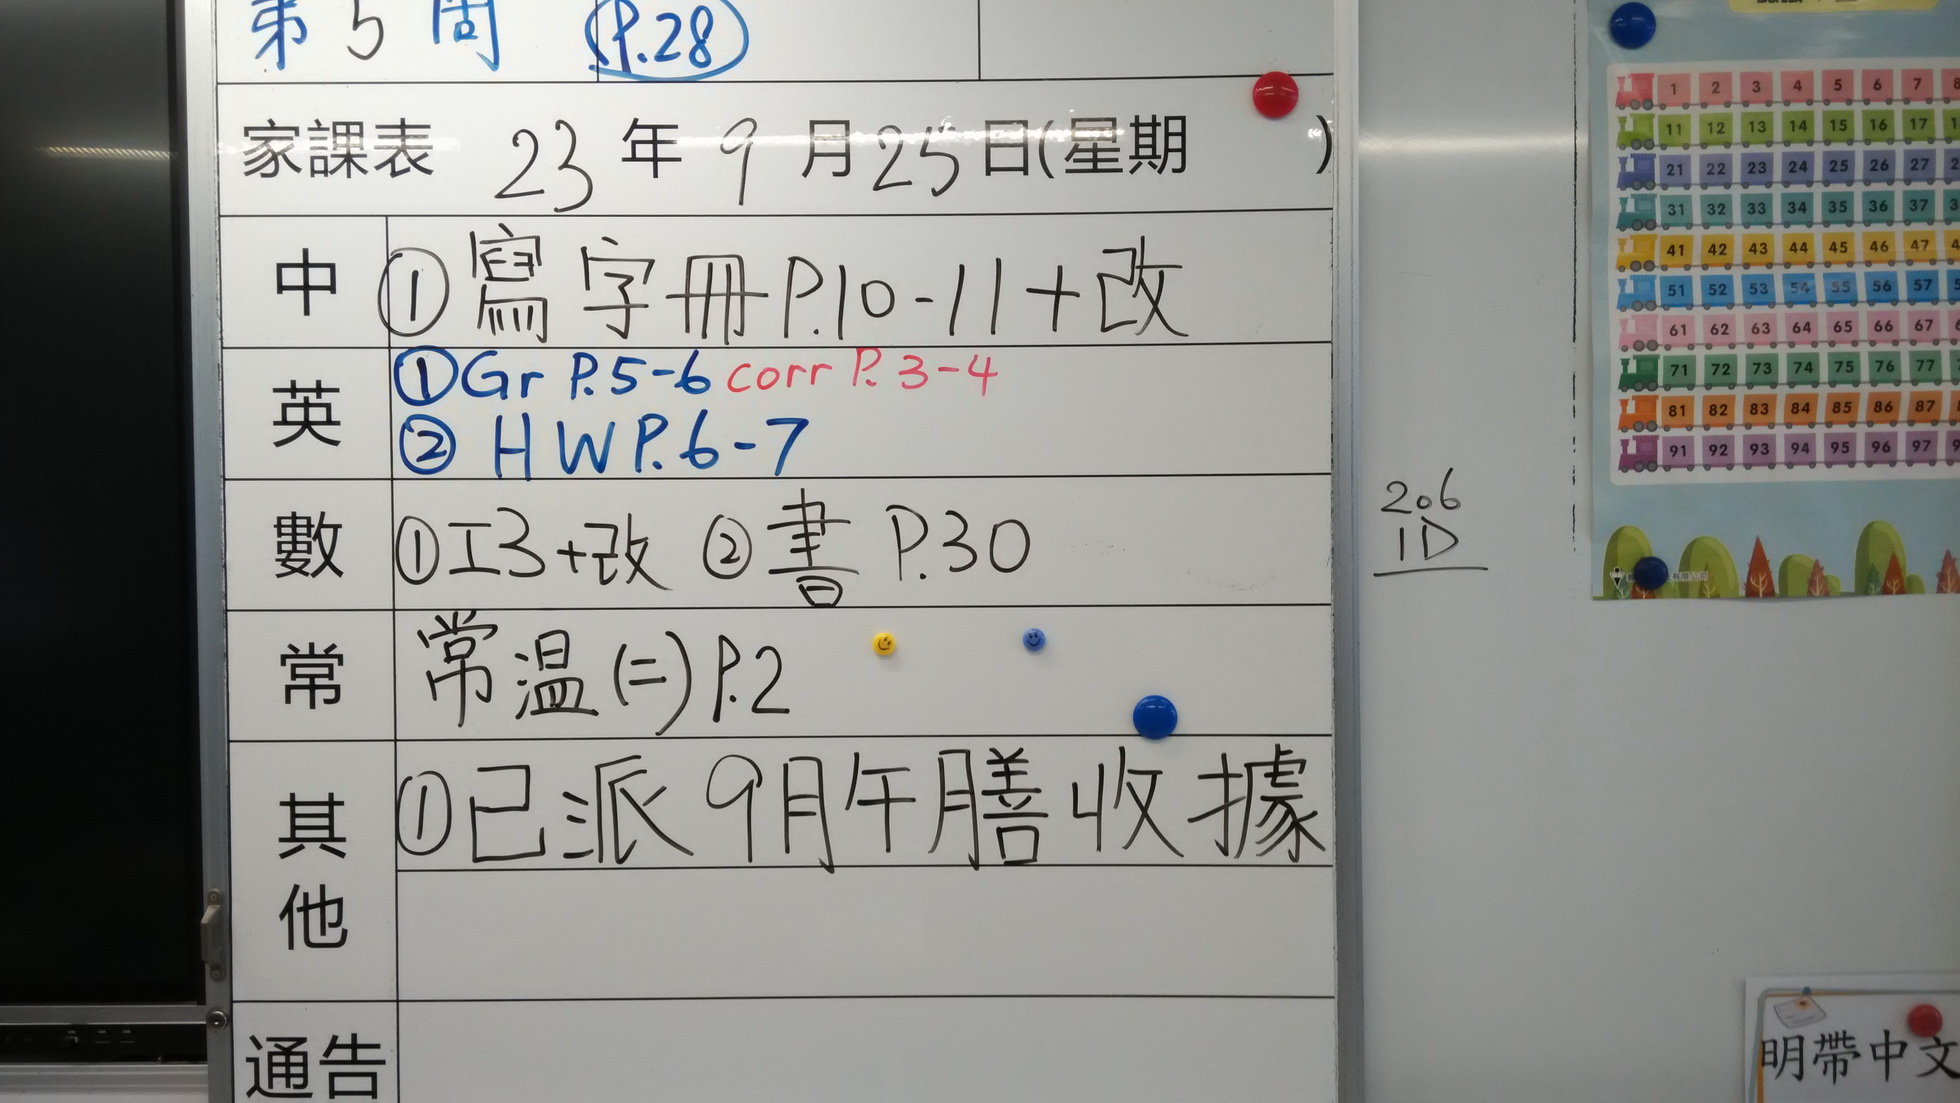 第5周 P.28
家課表 23年9月25日(星期 )
中 ①寫字冊P.10-11+改
英 ①Gr P.5-6 corr P.3-4
② HW P.6-7
數 ①工3+改 ②書 P.30
常 常溫(二)P.2
其他 ①已派9月午膳收據
通告
206
1D
1 2 3 4 5 6 7 8
11 12 13 14 15 16 17
21 22 23 24 25 26 27
31 32 33 34 35 36 37
41 42 43 44 45 46 47
51 52 53 54 55 56 57
61 62 63 64 65 66 67
71 72 73 74 75 76 77
81 82 83 84 85 86 87
91 92 93 94 95 96 97
有限公司
明帶中文